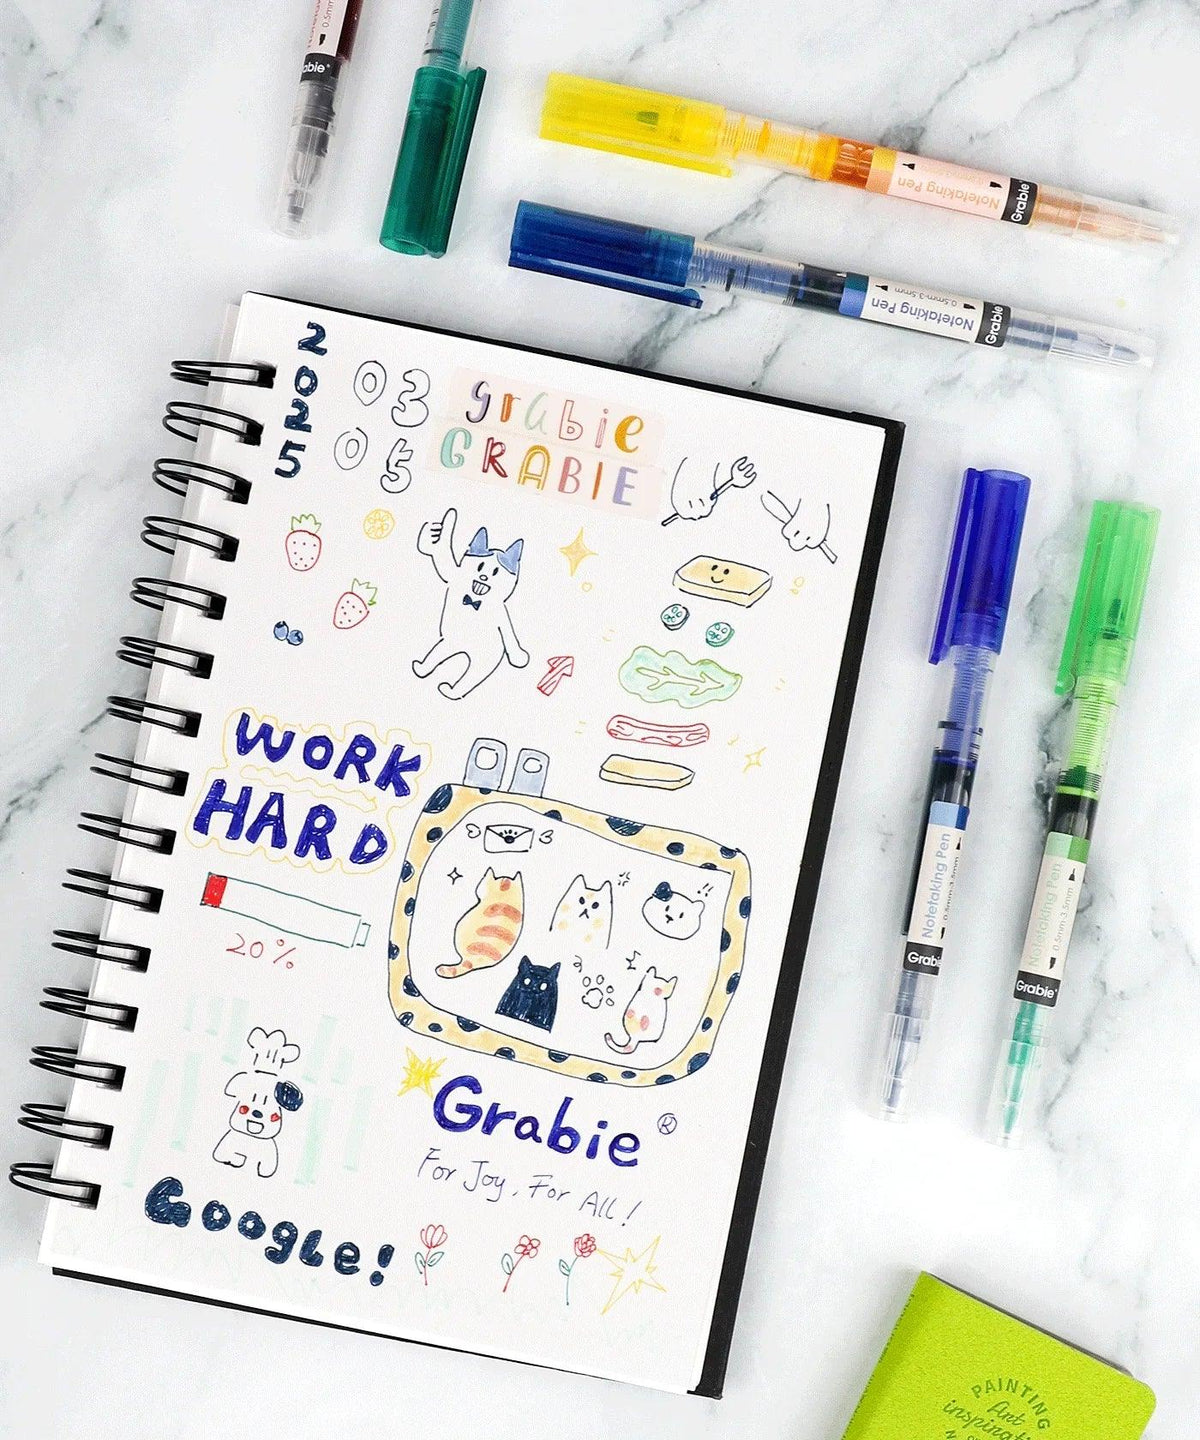 Grabie®
0.5mm
Notetaking Pen
Grabie
Notetaking Pen
0.5mm-3.5mm
Grabie
2025
03
05
grabie
GRABIE
WORK
HARD
20%
Grabie ®
For Joy, For All!
Google!
Notetaking Pen
0.5mm-3.5mm
Grabie
Notetaking Pen
0.5mm-3.5mm
Grabie®
PAINTING
Art